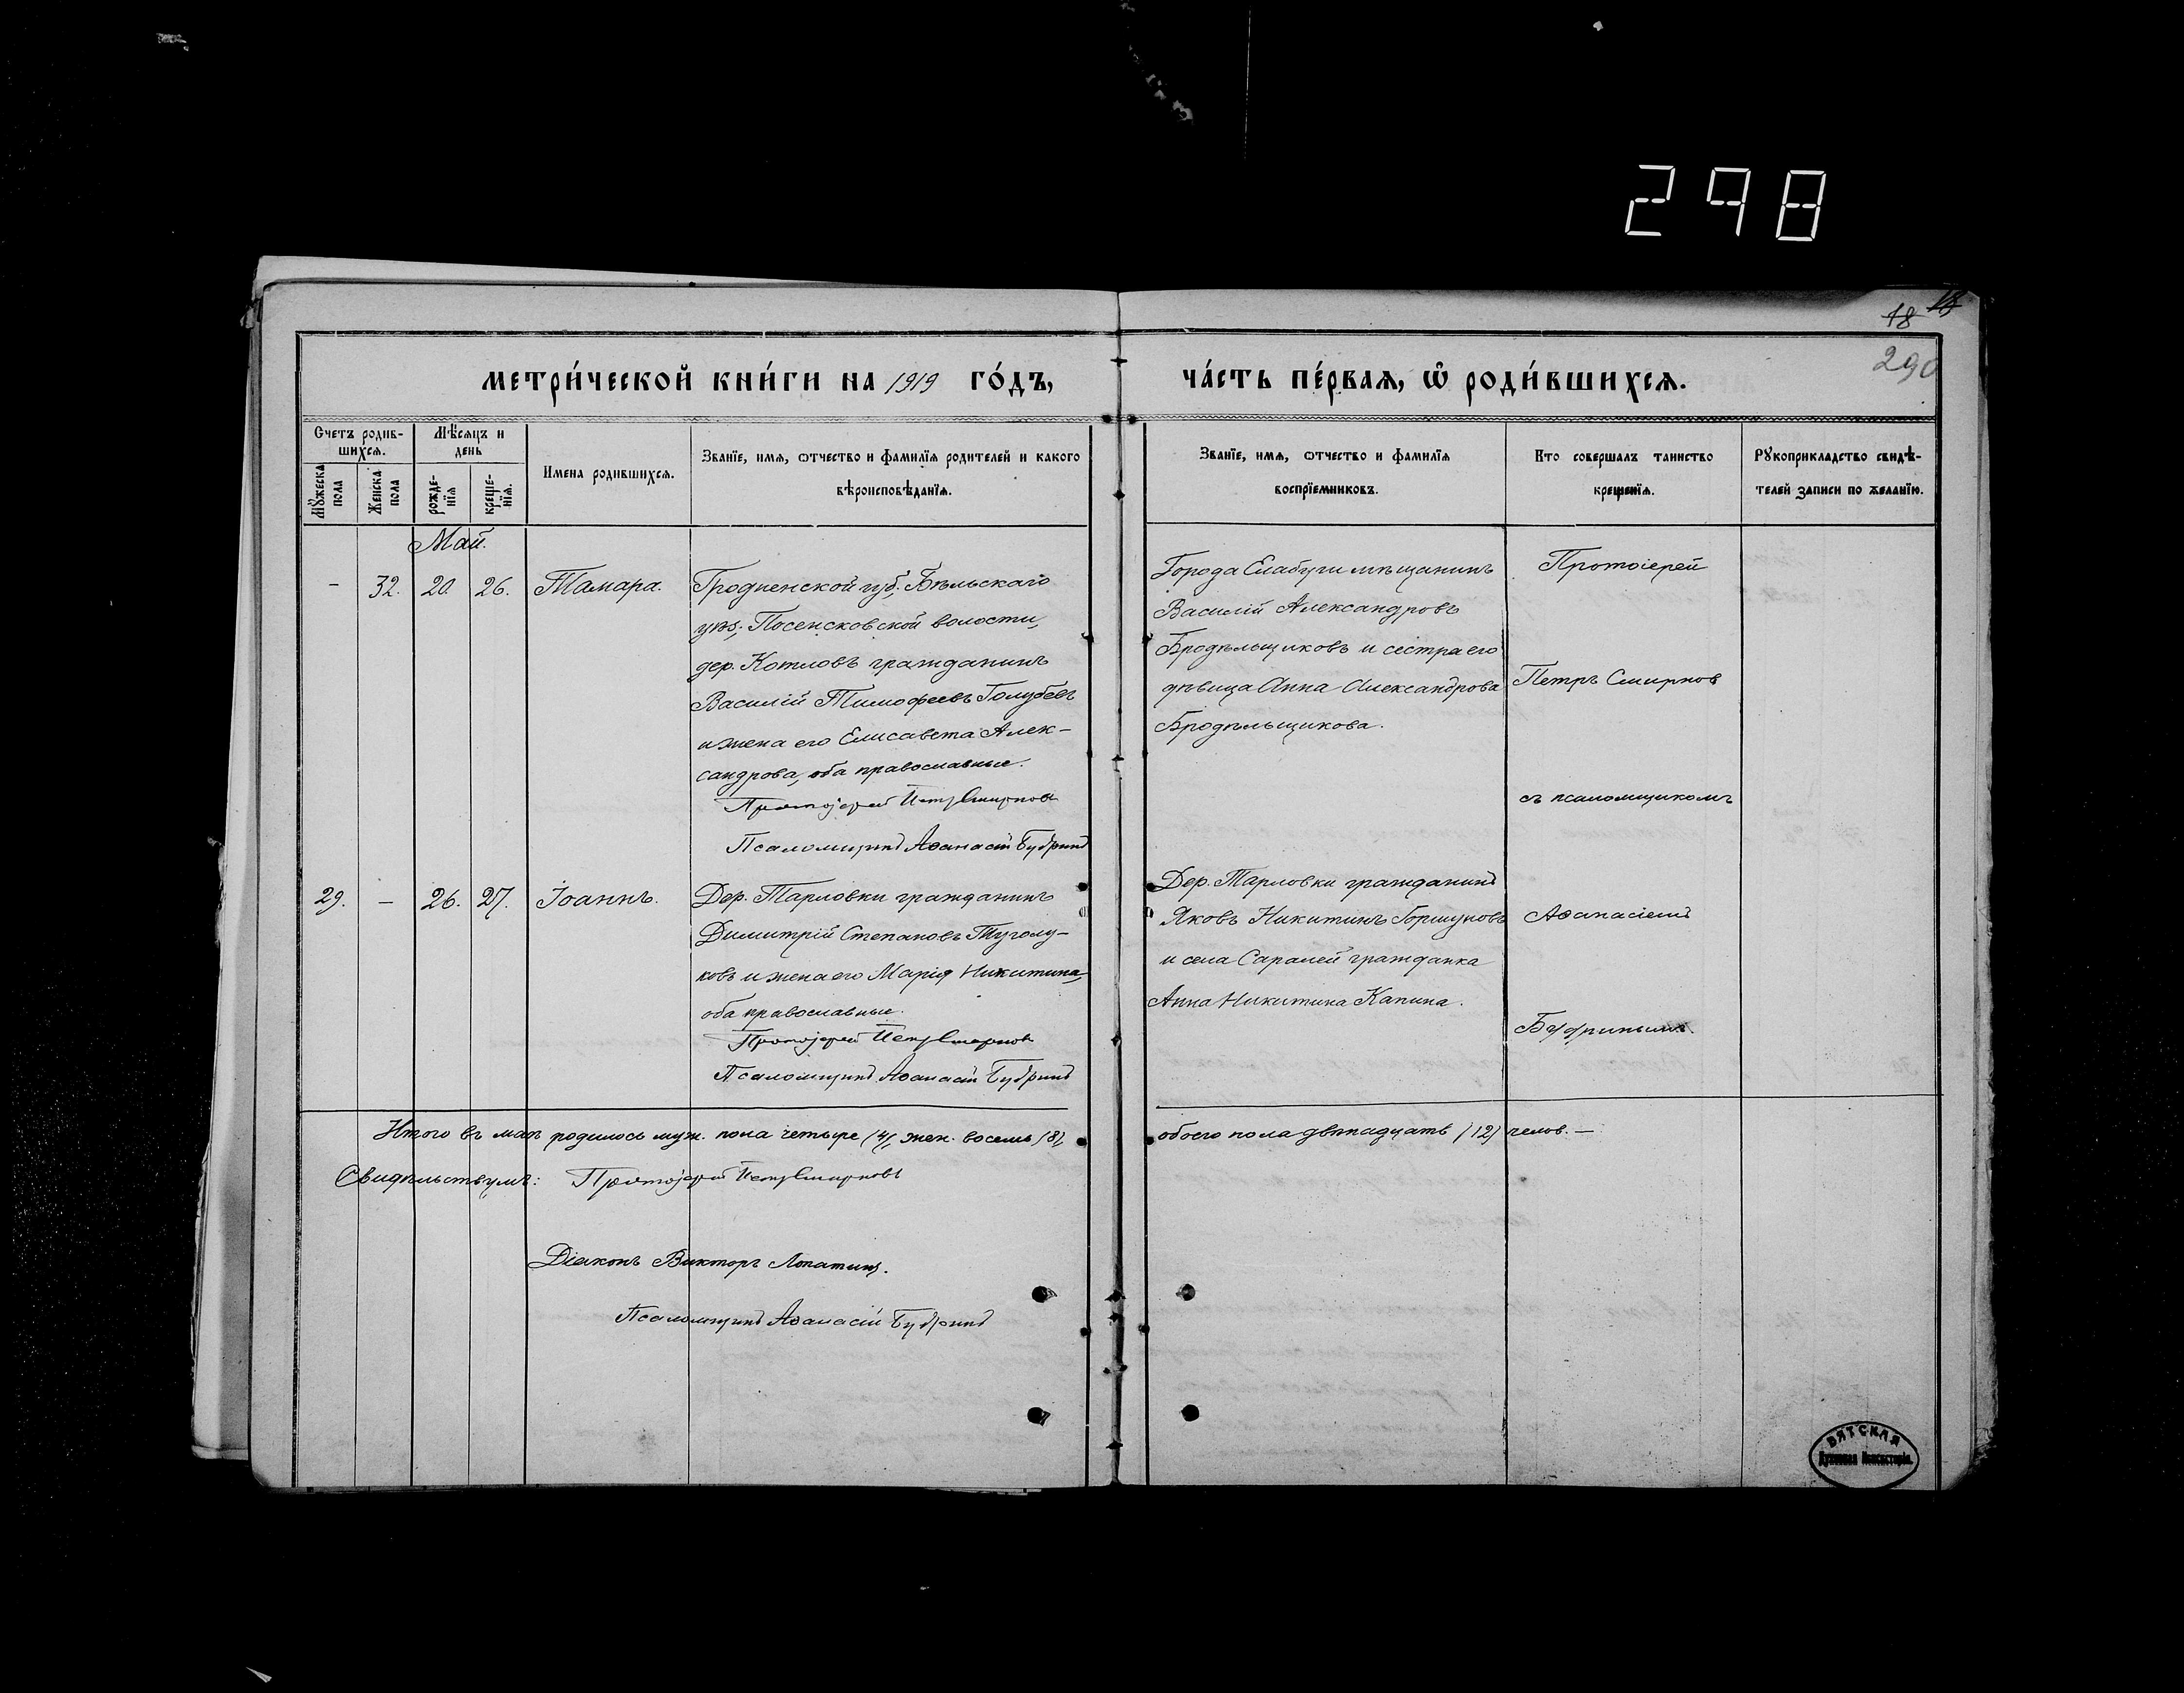 298
18
290
МЕТРИ́ЧЕСКОЙ КНИ́ГИ НА 1919 ГО́ДЪ,
ЧА́СТЬ ПЕ́РВАѦ, Ѽ РОДИ́ВШИХСѦ.
Счетъ родив-
шихсѧ.
Мꙋжеска пола
Женска пола
Мѣсѧцъ и
день
рожде-
нїѧ
креще-
нїѧ.
Имена родившихсѧ.
Званїе, имѧ, ѿтчество и фамилїѧ родителей и какого
вѣроисповѣданїѧ.
Званїе, имѧ, ѿтчество и фамилїѧ
воспрїемниковъ.
Кто совершалъ таинство
крещенїѧ.
Рꙋкоприкладство свидѣ-
телей записи по желанїю.
Май.
– 32. 20 26. Тамара.
Гродненской губ., Бѣльскаго
уѣз., Посенсковской волости,
дер. Котловъ гражданинъ
Василій Тимофеевъ Голубевъ
и жена его Елисавета Алек-
сандрова, оба православные.
Протоіерей Петръ Смирновъ
Псаломщикъ Аѳанасій Бубринъ
Города Елабуги мѣщанинъ
Василій Александровъ
Бродѣльщиковъ и сестра его
дѣвица Анна Александрова
Бродѣльщикова.
Протоіерей
Петръ Смирновъ
съ псаломщикомъ
29. – 26. 27. Іоаннъ.
Дер. Тарловки гражданинъ
Димитрій Степановъ Туголу-
ковъ и жена его Марія Никитина,
оба православные.
Протоіерей Петръ Смирновъ
Псаломщикъ Аѳанасій Бубринъ
Дер. Тарловки гражданинъ
Яковъ Никитинъ Горшуновъ
и села Саралей гражданка
Анна Никитина Капина.
Аѳанасіемъ
Бубринымъ.
Итого въ маѣ родилось муж. пола четыре (4), жен. восемь (8),
обоего пола двѣнадцать (12) челов. –
Свидѣтельствуемъ: Протоіерей Петръ Смирновъ
Діаконъ Викторъ Лопатинъ.
Псаломщикъ Аѳанасій Бубринъ
ВЯТСКАЯ
Духовная Консисторія.